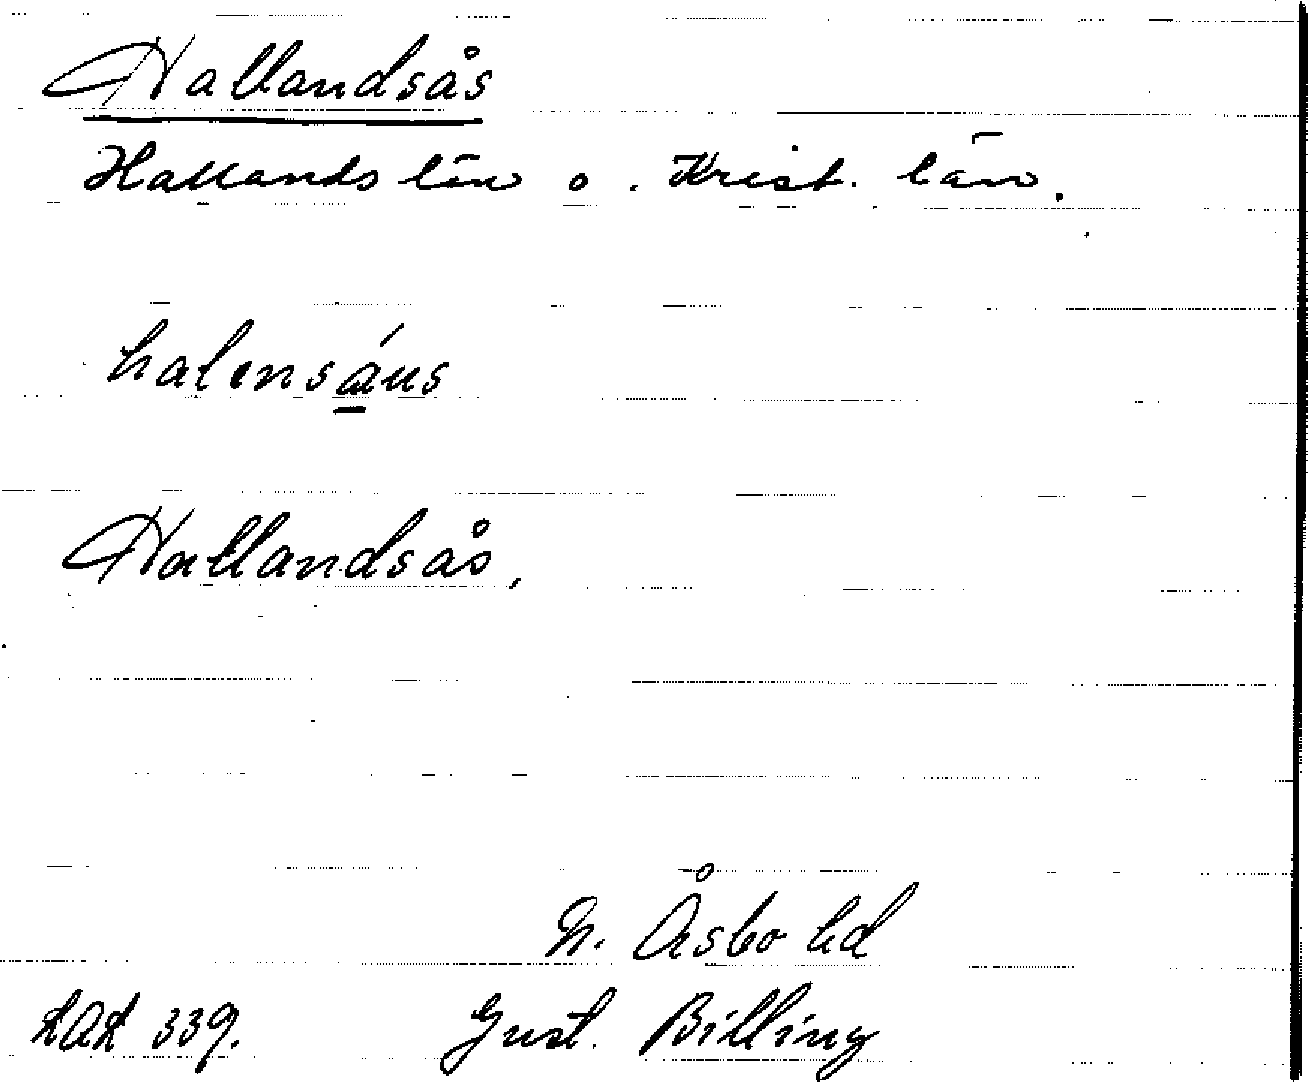 Hallandsås
Hallands län o. Krist. län.
halənsáus
Hallandsås,
N. Åsbo hd
LAL 339. Gust. Billing